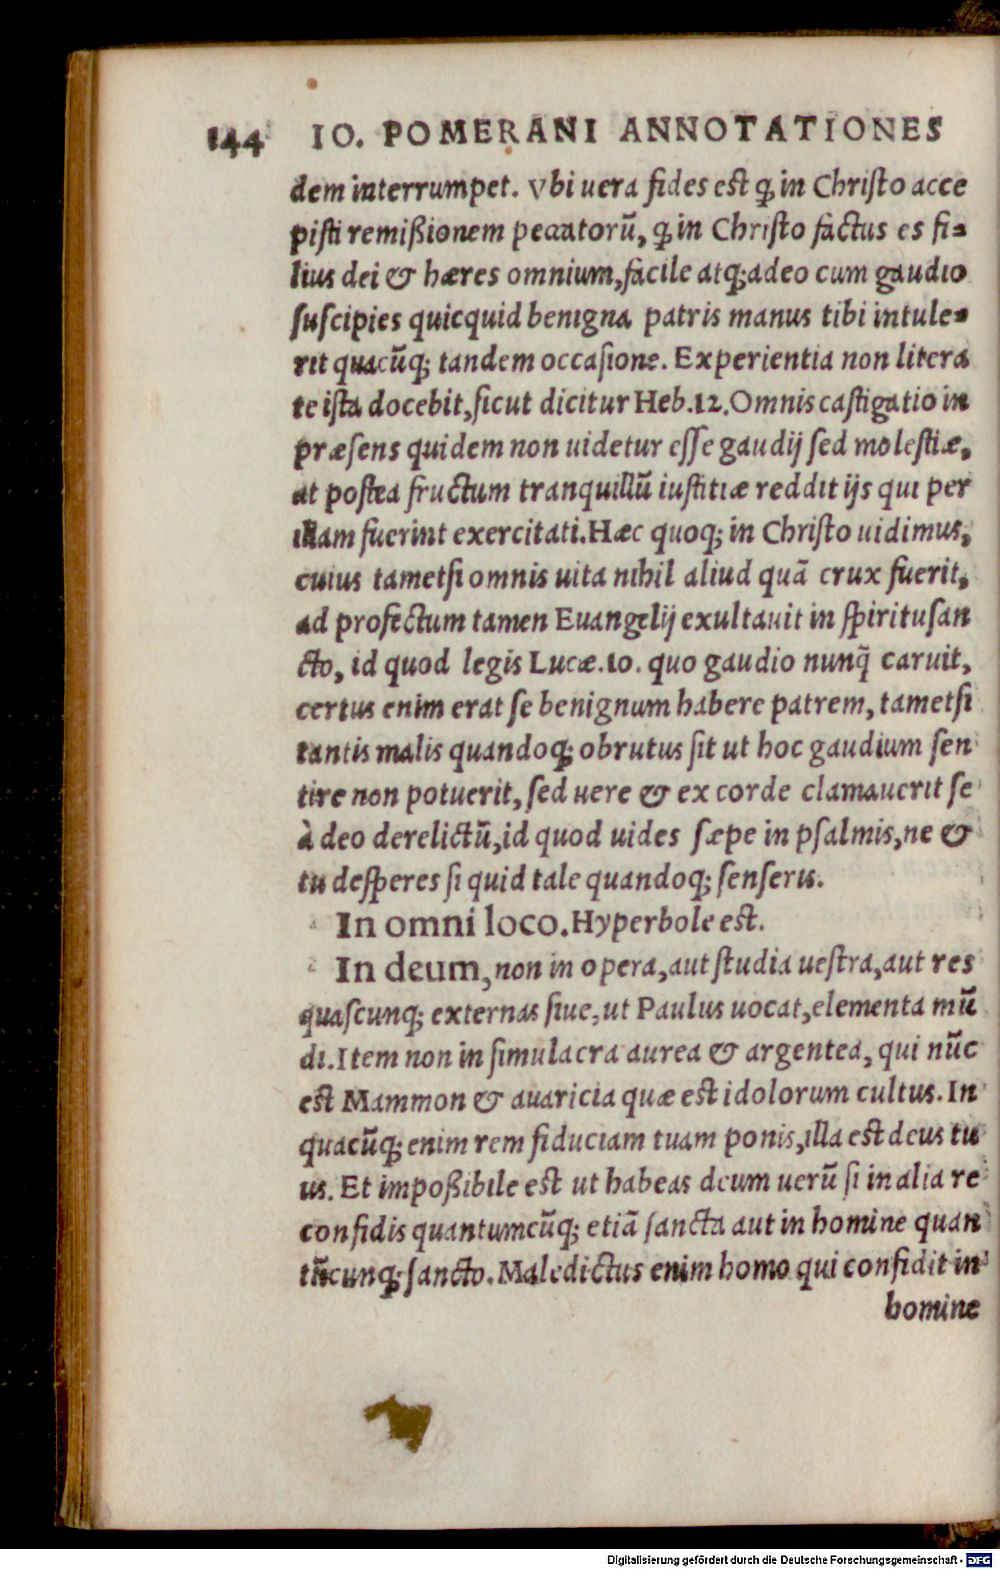 144 IO. POMERANI ANNOTATIONES
dem interrumpet. Vbi uera fides est ꝙ in Christo acce
pisti remißionem peccatorũ, ꝙ in Christo factus es fi=
lius dei & hæres omnium, facile atq; adeo cum gaudio
suscipies quicquid benigna patris manus tibi intule=
rit quacũq; tandem occasione. Experientia non litera
te ista docebit, sicut dicitur Heb.12. Omnis castigatio in
præsens quidem non uidetur esse gaudij sed molestiæ,
at postea fructum tranquillũ iustitiæ reddit ijs qui per
illam fuerint exercitati. Hæc quoq; in Christo uidimus,
cuius tametsi omnis uita nihil aliud quã crux fuerit,
ad profectum tamen Euangelij exultauit in spiritusan
cto, id quod legis Lucæ.10. quo gaudio nunq̃ caruit,
certus enim erat se benignum habere patrem, tametsi
tantis malis quandoq; obrutus sit ut hoc gaudium sen
tire non potuerit, sed uere & ex corde clamauerit se
à deo derelictũ, id quod uides sæpe in psalmis, ne &
tu desperes si quid tale quandoq; senseris.
In omni loco. Hyperbole est.
In deum, non in opera, aut studia uestra, aut res
quascunq; externas siue, ut Paulus uocat, elementa mũ
di. Item non in simulacra aurea & argentea, qui nũc
est Mammon & auaricia quæ est idolorum cultus. In
quacũq; enim rem fiduciam tuam ponis, illa est deus tu
us. Et impoßibile est ut habeas deum uerũ si in alia re
confidis quantumcũq; etiã sancta aut in homine quan
tũcunq; sancto. Maledictus enim homo qui confidit in
homine
Digitalisierung gefördert durch die Deutsche Forschungsgemeinschaft - DFG